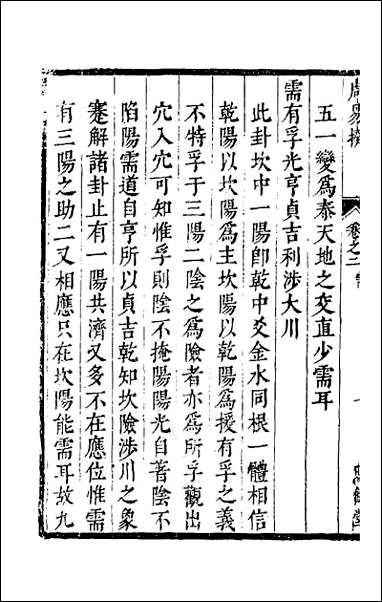 周易揆
卷之二 需
五一變爲泰天地之交直少需耳
需有孚光亨貞吉利涉大川
此卦坎中一陽卽乾中爻金水同根一體相信
乾陽以坎陽爲主坎陽爲援有孚之義
不特孚于三陽二陰之爲險者亦爲所孚觀出
穴入穴可知惟孚則陰不掩陽陽光自著陰不
陷陽需道自亨所以貞吉乾知坎險涉川之象
蹇解諸卦止有一陽共濟又多不在應位惟需
有三陽之助二又相應只在坎陽能需耳故九